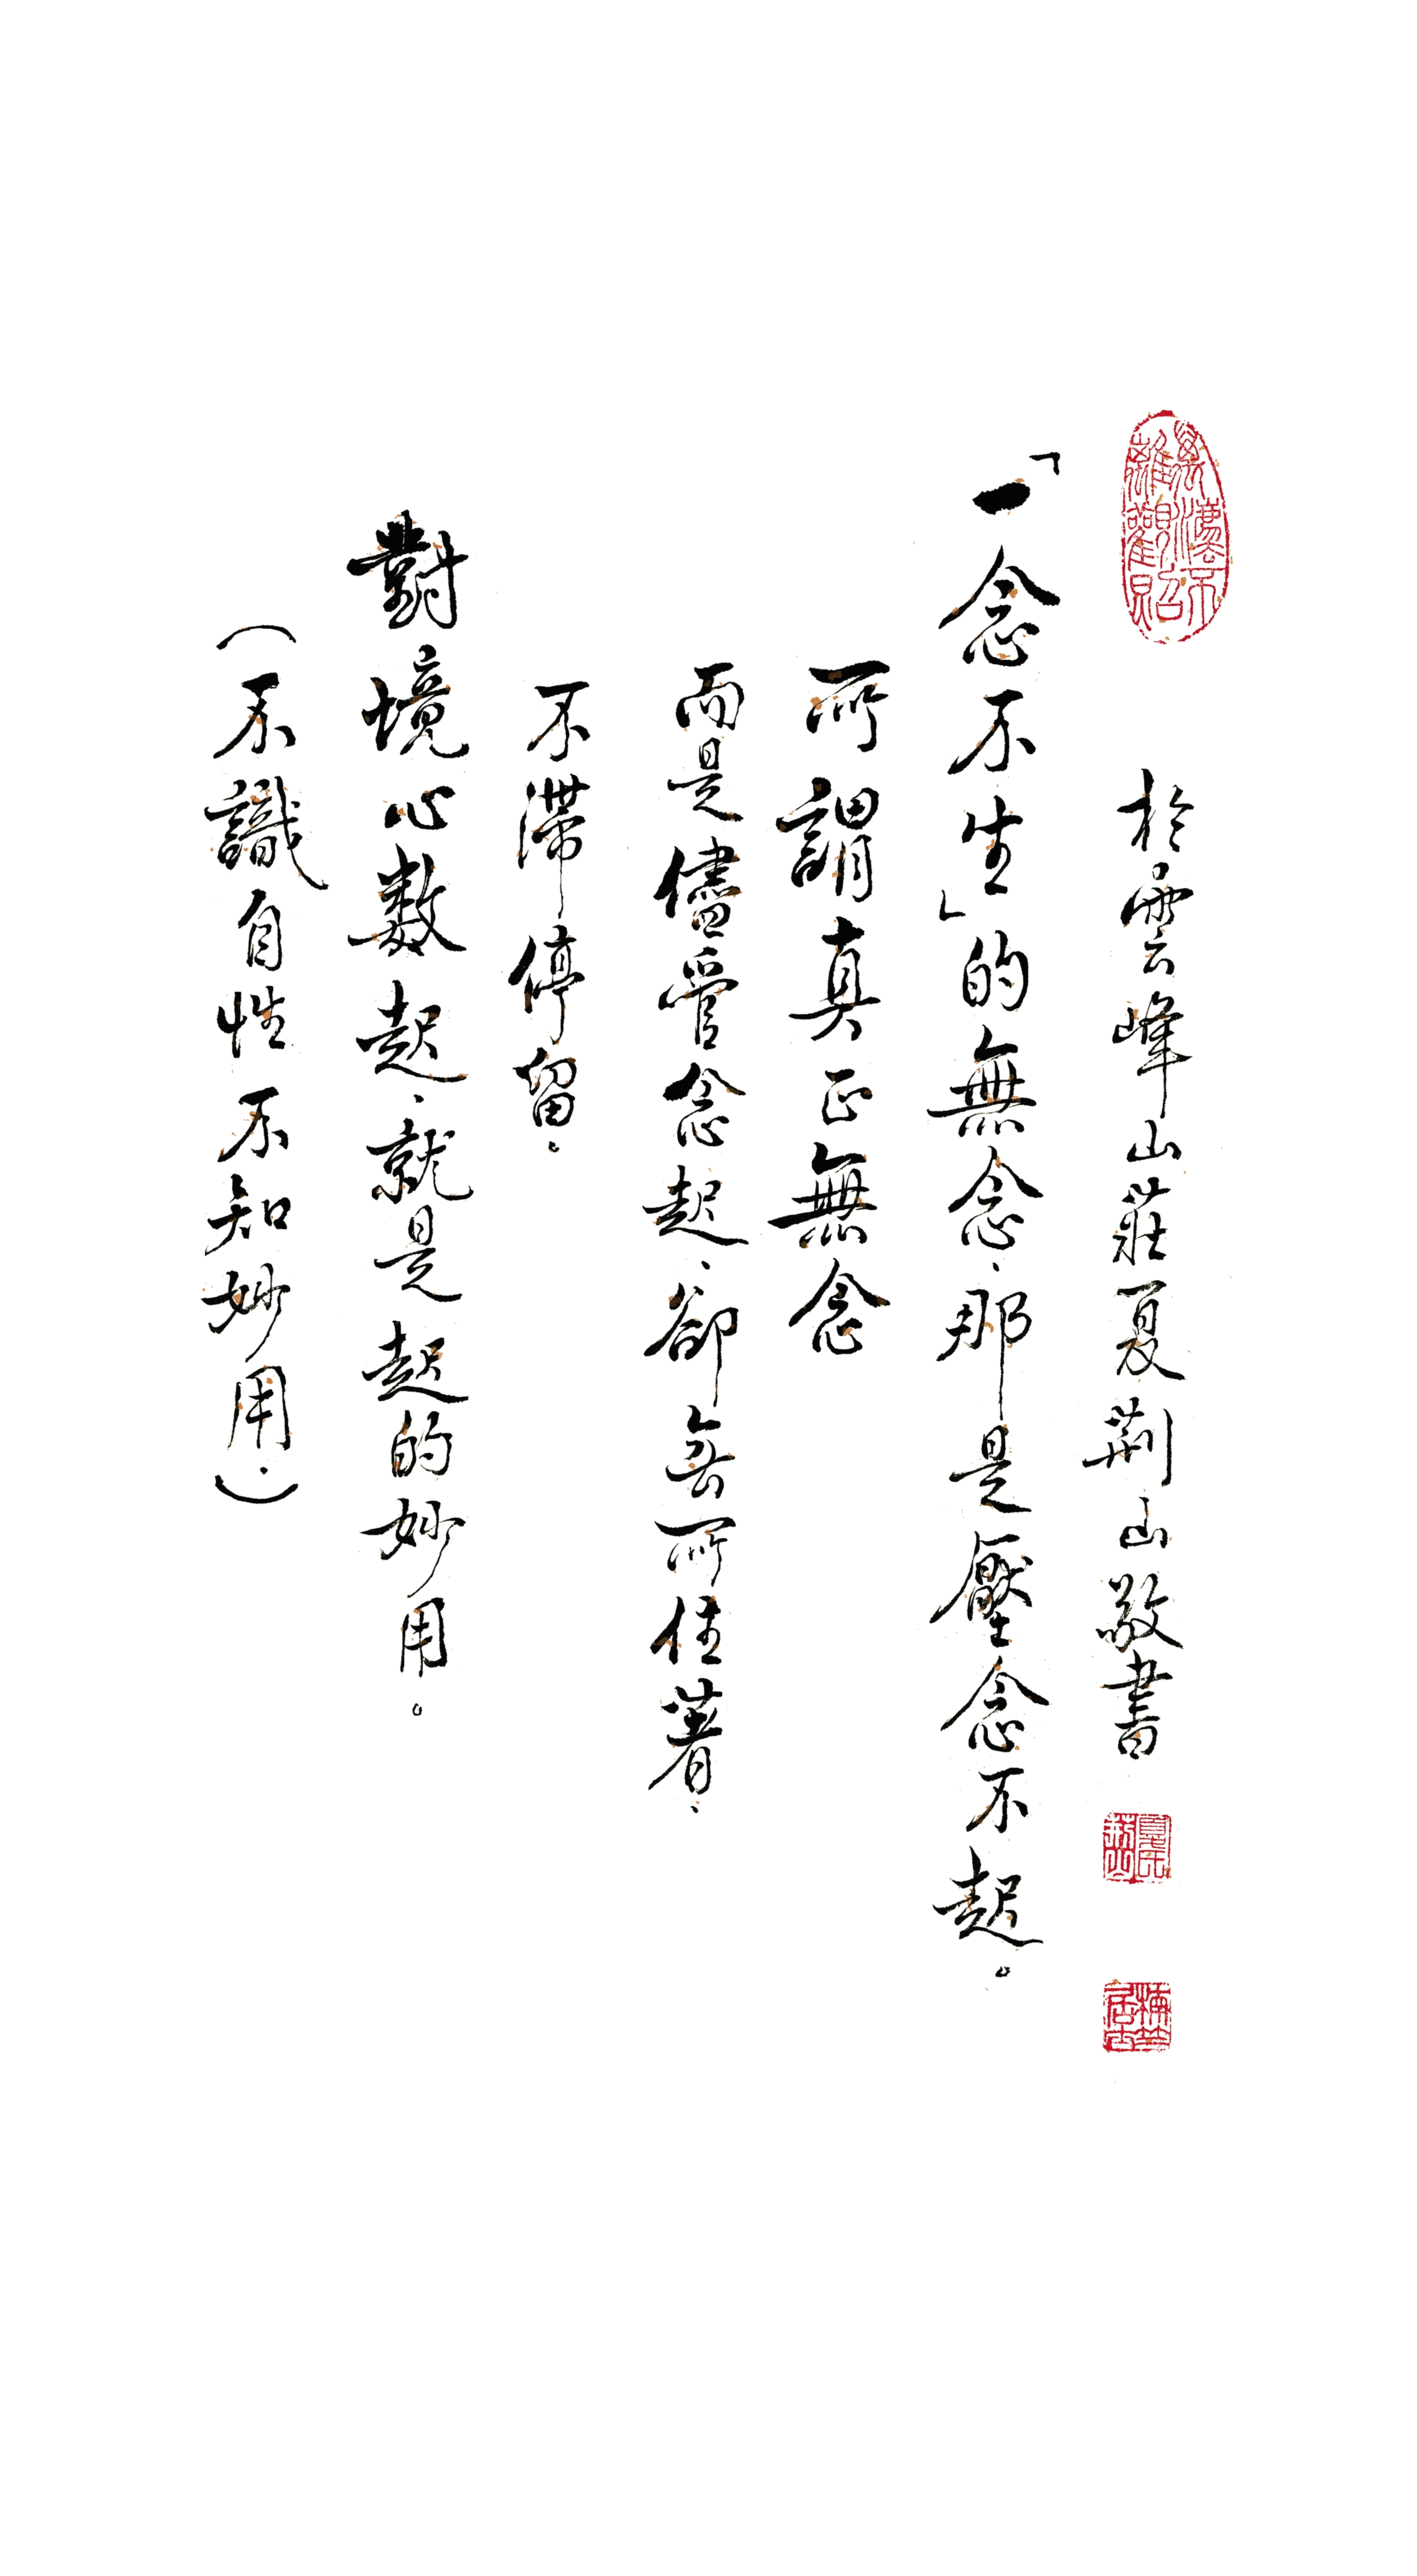 於雲峰山莊夏荊山敬書
「一念不生」的無念、那是壓念不起。
所謂真正無念
而是儘管念起、卻無所住著、
不滯停留。
對境心數起、就是起的妙用。
（不識自性不知妙用.）